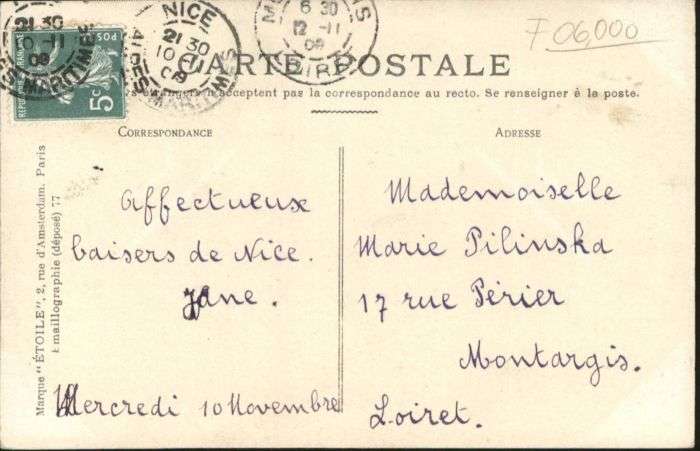 NICE
21 30
10 -11
09
ALPES MARITIMES
21 30
10 -11
09
MARITIMES
6 30
12 -11
09
LOIRET
REPUBLIQUE FRANÇAISE
POSTES
5c
F 06,000
CARTE POSTALE
étrangers n'acceptent pas la correspondance au recto. Se renseigner à la poste.
CORRESPONDANCE
ADRESSE
Affectueux
baisers de Nice.
Jane.
Mercredi 10 Novembre
Mademoiselle
Marie Pilinska
17 rue Périer
Montargis.
Loiret.
Marque "ÉTOILE", 2, rue d'Amsterdam. Paris
Emaillographie (déposé) 77